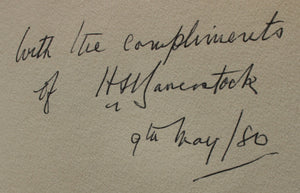 With the compliments
of
9th May/80